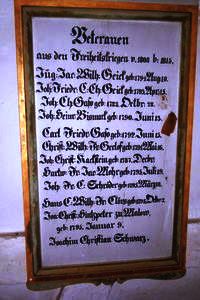 Veteranen
aus den Freiheitskriegen v. 1808 b. 1815.
Jüg. Jac. Wilh. Geick geb. 1794 Aug. 19.
Joh. Friedr. C. Ch. Geick geb. 1795 Apr. 15.
Joh. Ch. Gass geb. 1788. Octbr. 21.
Joh. Heinr. Bismark geb. 1790. Juni 13.
Carl Friedr. Gass geb. 1792. Juni 15.
Christ. Wilh. Fr. Gerloff geb. Mai 16.
Joh. Christ. Kacklein geb. 1787. Decbr.
Fr. Jac. Mohr geb. 1795. Juli
Joh. Fr. C. Schröder geb. 1795 März
Hans C. Wilh. Fr. geb. Octbr.
Joa. Christ. Hinzpeter zu Malow.
geb. 1795. Januar 9.
Joachim Christian Schwarz.